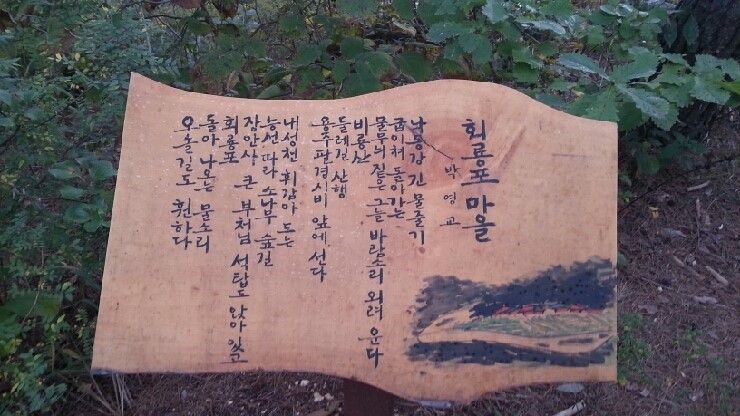 회룡포 마을
박영교
낙동강 긴 물줄기
굽이쳐 돌아가는
물무늬 짙은 그늘 바람소리 외려 운다
비룡산
들레길 산행
용주팔경시비 앞에 선다
내성천 휘감아 도는
능선 따라 소나무 숲길
장안사 큰 부처님 석탑도 앉아 있고
회룡포
돌아 나오는 물소리
오솔길도 훤하다